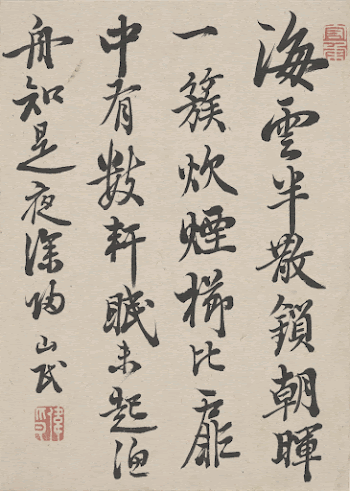 海雲半散鎖朝暉
一簇炊煙櫛比扉
中有數軒眠未起漁
舟知是夜深歸 山民